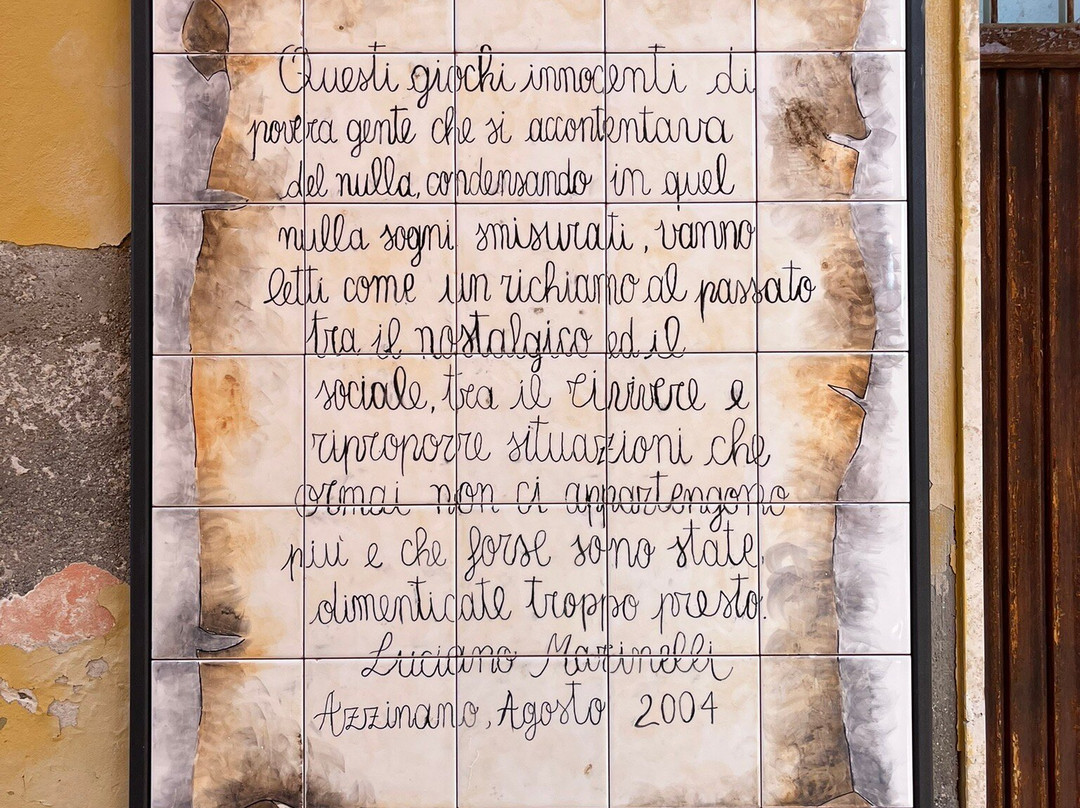 Questi giochi innocenti di
povera gente che si accontentava
del nulla, condensando in quel
nulla sogni smisurati, vanno
letti come un richiamo al passato
tra il nostalgico ed il
sociale, tra il rivivere e
riproporre situazioni che
ormai non ci appartengono
più e che forse sono state
dimenticate troppo presto.
Luciano Marinelli
Azzinano, Agosto 2004